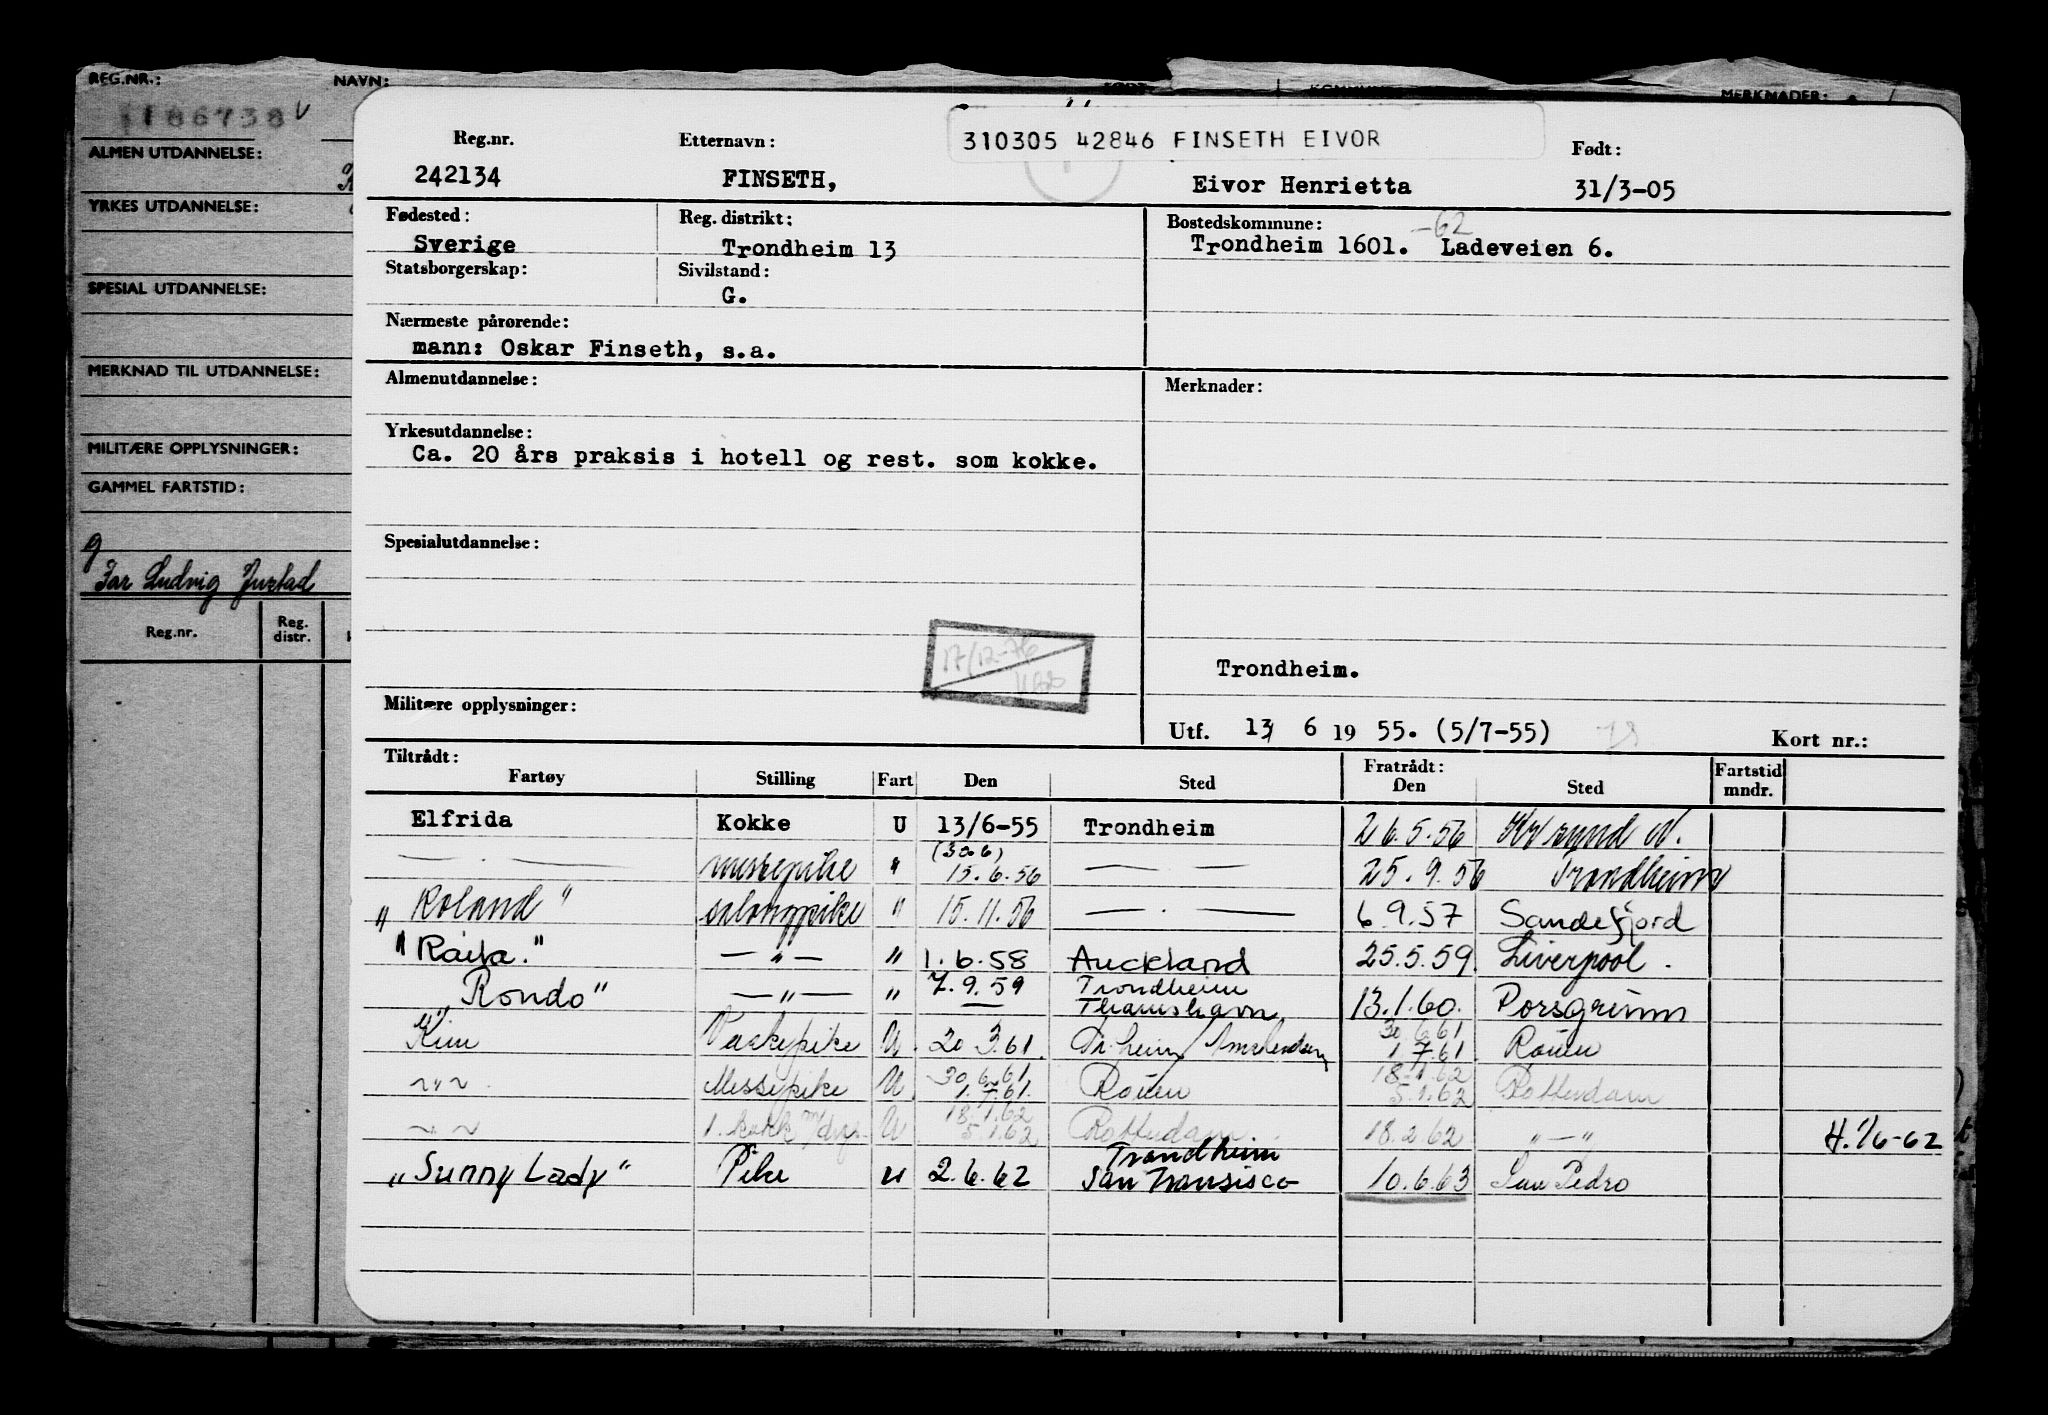 REG.NR.: NAVN: MERKNADER:
186738 V
ALMEN UTDANNELSE:
YRKES UTDANNELSE:
SPESIAL UTDANNELSE:
MERKNAD TIL UTDANNELSE:
MILITÆRE OPPLYSNINGER:
GAMMEL FARTSTID:
g
Far Ludvig Justad
Reg.nr. Reg. distr.
310305 42846 FINSETH EIVOR
Reg.nr. Etternavn: Født:
242134 FINSETH, Eivor Henrietta 31/3-05
Fødested: Reg. distrikt: Bostedskommune: -62
Sverige Trondheim 13 Trondheim 1601. Ladeveien 6.
Statsborgerskap: Sivilstand:
G.
Nærmeste pårørende:
mann: Oskar Finseth, s.a.
Almenutdannelse: Merknader:
Yrkesutdannelse:
Ca. 20 års praksis i hotell og rest. som kokke.
Spesialutdannelse:
17/12-76
Trondheim.
Militære opplysninger:
Utf. 13 6 19 55. (5/7-55) Kort nr.:
Tiltrådt: Fratrådt: Fartstid
Fartøy Stilling Fart Den Sted Den Sted mndr.
Elfrida Kokke U 13/6-55 Trondheim 26.5.56 Kr sund N.
— . — messepike " (30.6) 13.6.56 — — 25.9.56 Trondheim
"Roland" salongpike " 15.11.56 — . — 6.9.57 Sandefjord
"Raila." — " — " 1.6.58 Auckland 25.5.59. Liverpool.
"Rondo" — " — " 7.9.59 Trondheim
— Thamshavn 13.1.60. Porsgrunn
Kim Vaskepike U 20 3.61. Tr.heim/Amsterdam 30.6.61 1.7.61 Rouen
~"~ Messepike U 30.6.61 1.7.61. Rouen 18.1.62 5.1.62 Rotterdam
~"~ 1. kokk m/dys. U 18.1.62 5.1.62 Rotterdam 18.2.62 " — " H.1/6-62
"Sunny Lady" Pike u 2.6.62 Trondheim San Fransisco 10.6.63 San Pedro